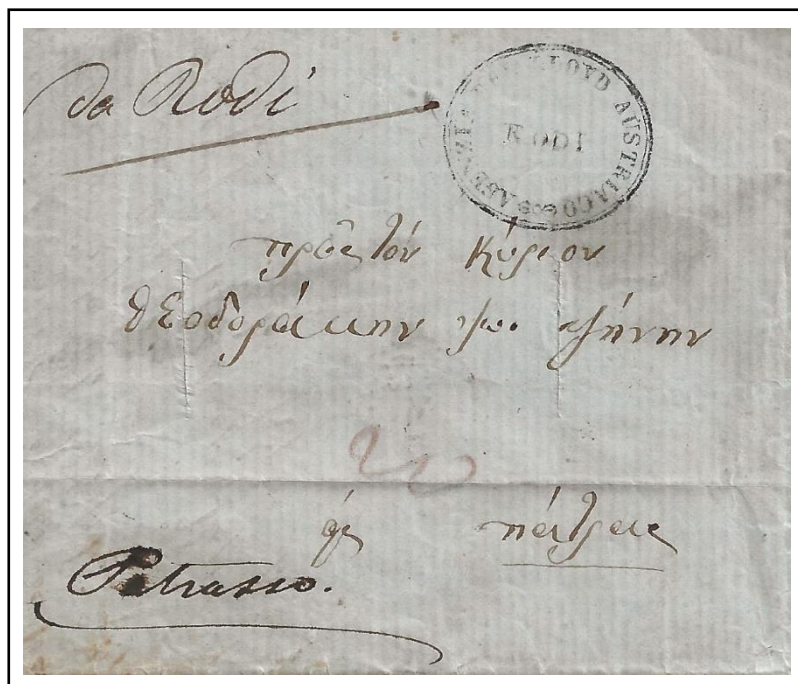 da Rodi
AGENZIA DEL LLOYD AUSTRIACO
RODI
πρὸς τὸν Κύριον
Θεοδοράκην
20
Πάτρας
Patrasso.